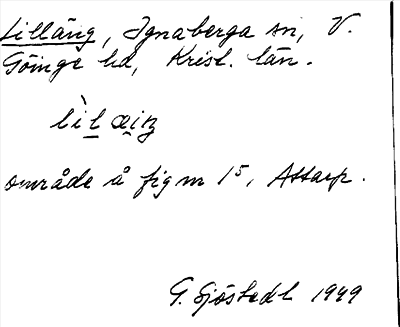 Lilläng, Ignaberga sn, V.
Göinge hd, Krist. län.
område å fig nr 1⁵, Attarp.
G. Sjöstedt 1949